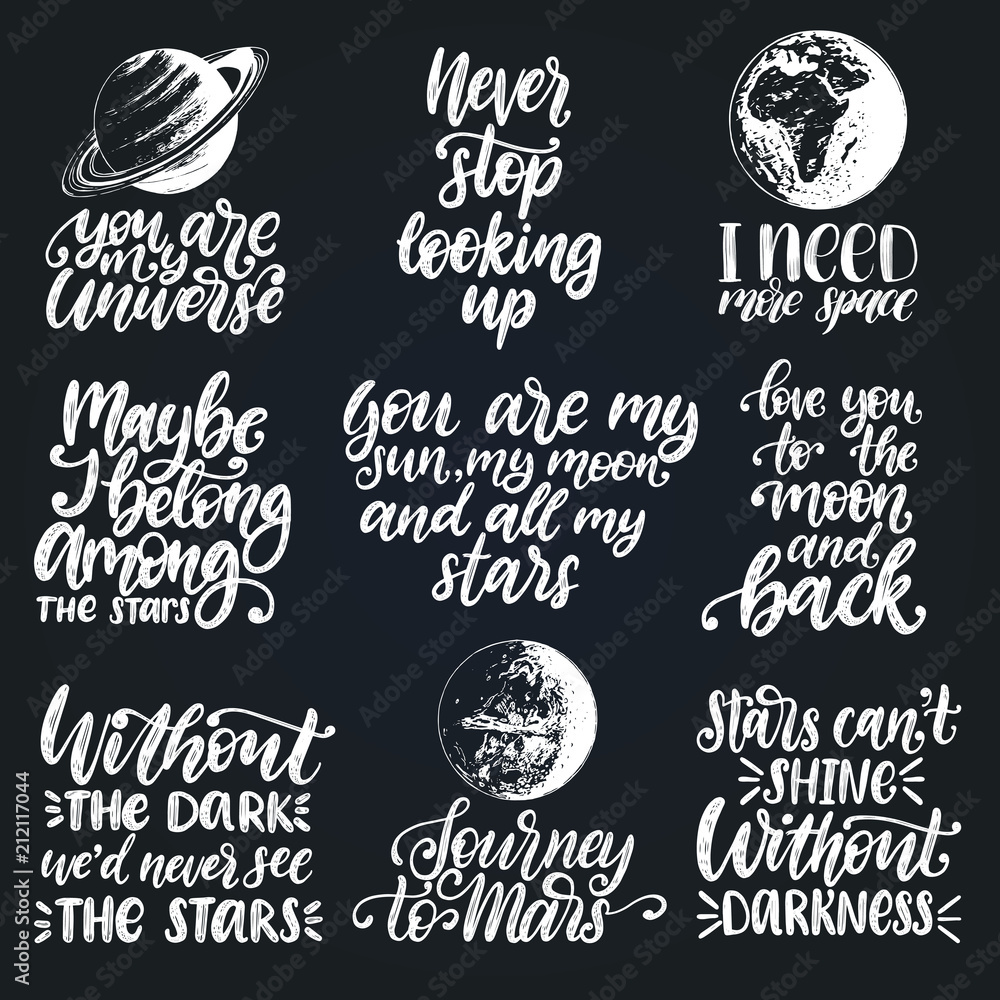 you are
my
Universe
Never
stop
looking
up
I NEED
more space
Maybe
I belong
among
THE STARS
you are my
sun, my moon
and all my
stars
love you
to the
moon
and
back
Without
THE DARK
we'd never see
THE STARS
Journey
to Mars
Stars can't
SHINE
Without
DARKNESS
Adobe Stock | #212117044